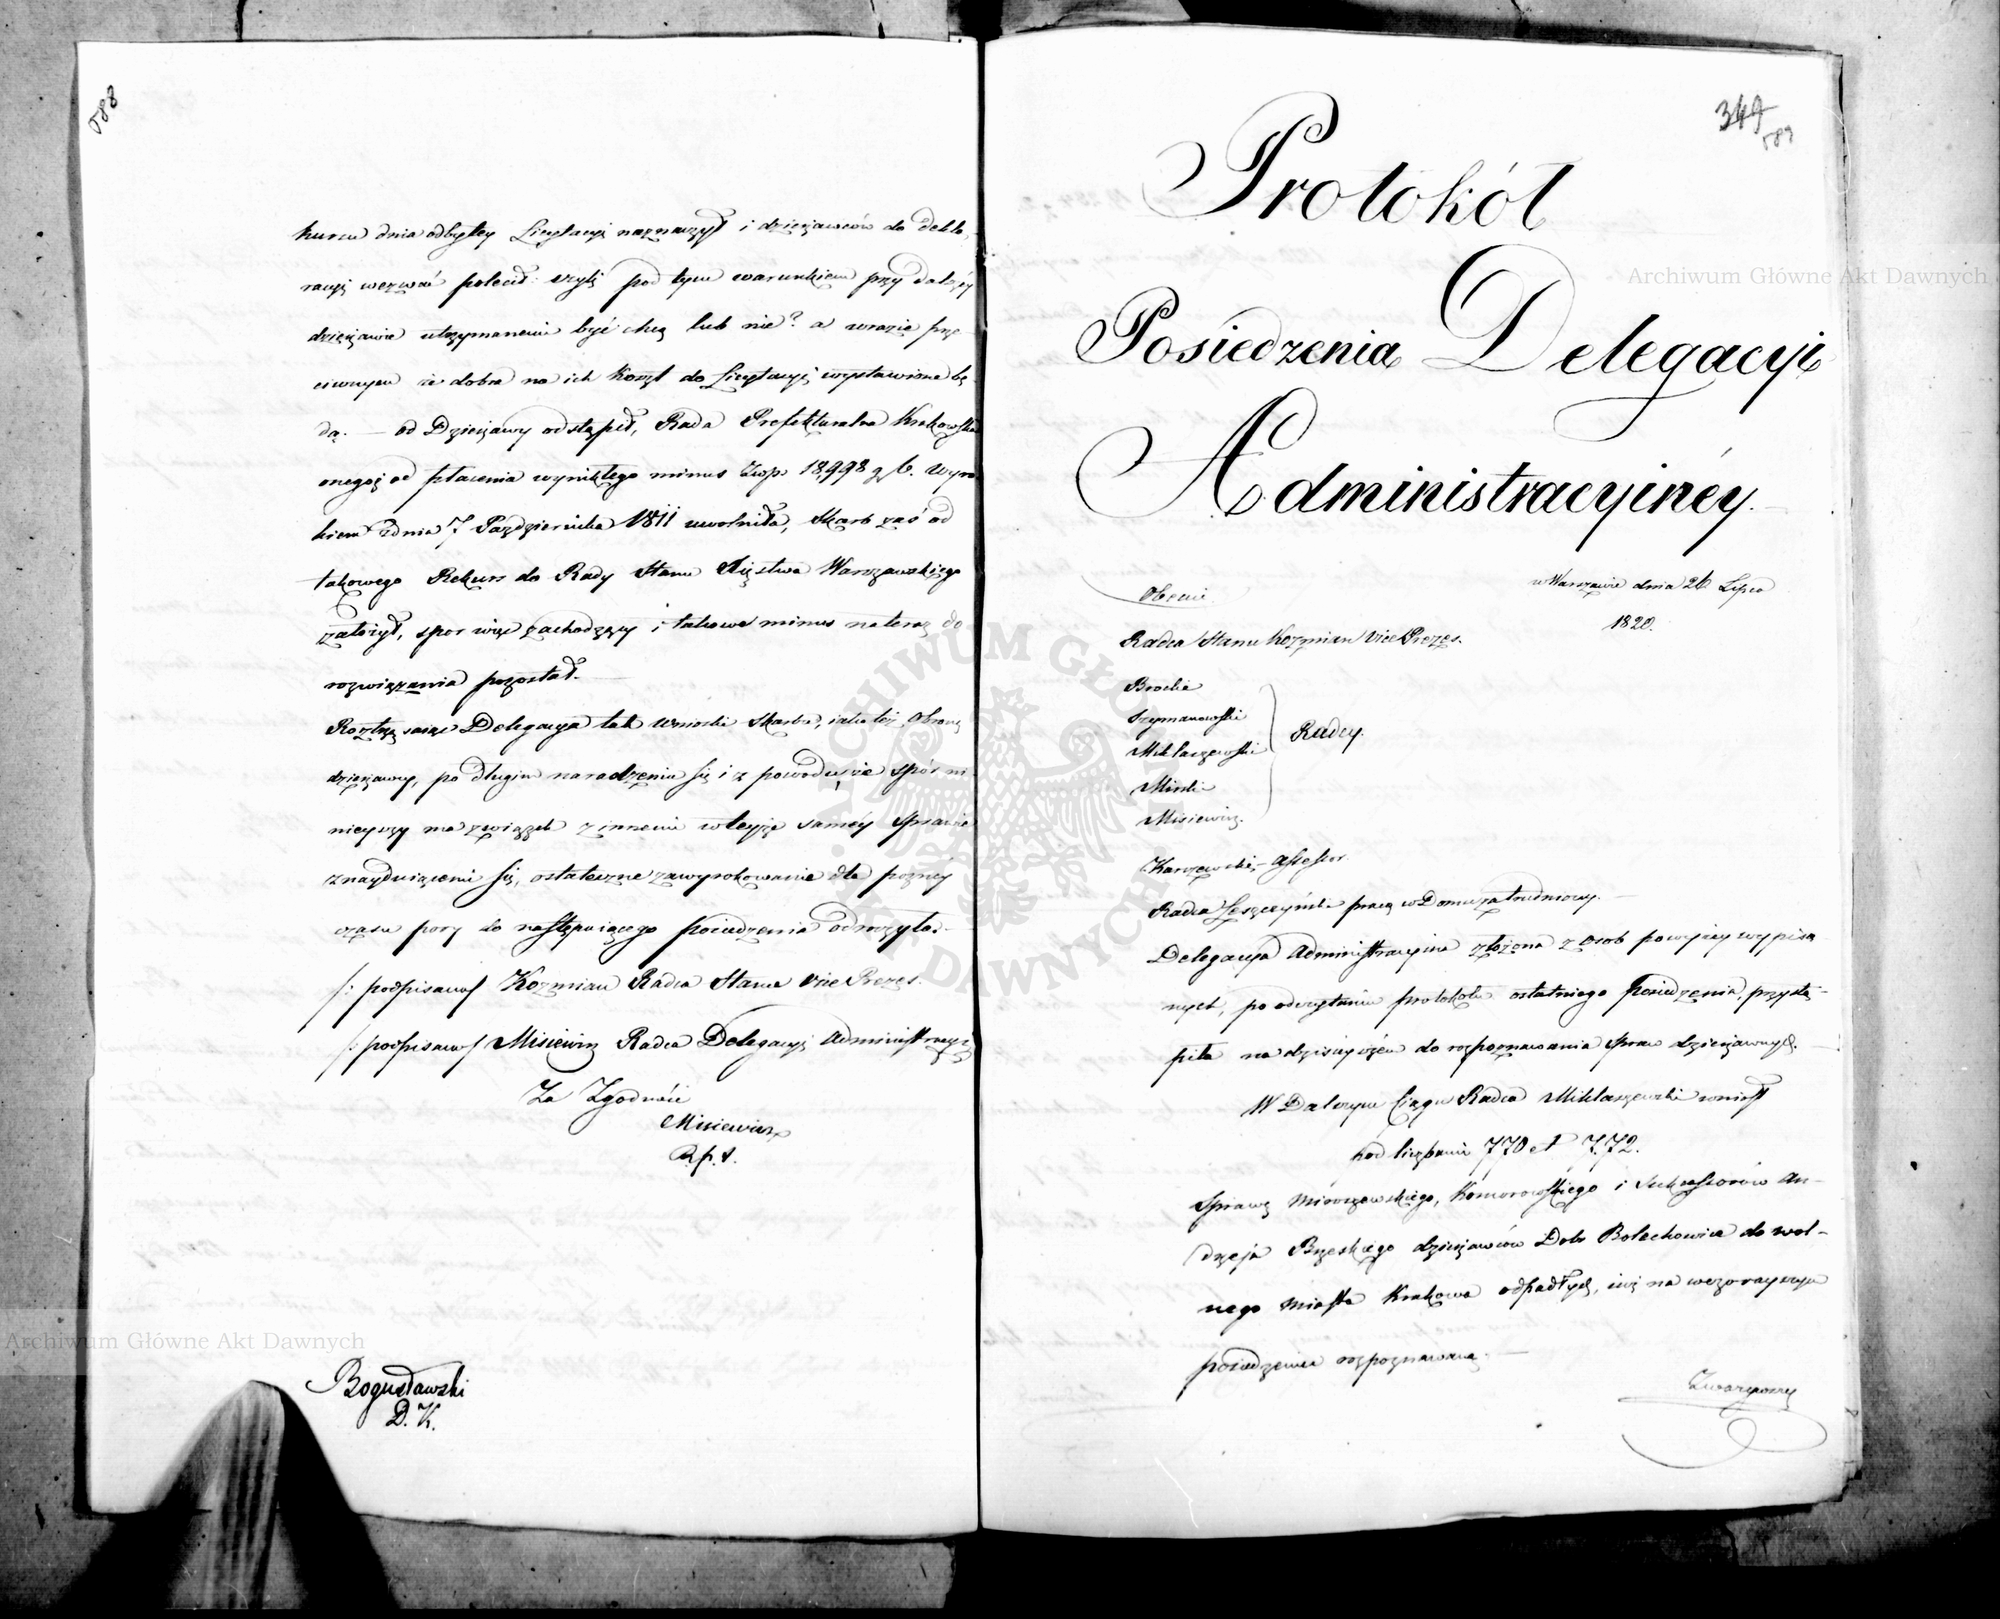 588
kursu dnia odbytey Licytacyi naznaczył i dzierżawców do dekla-
racyi wezwać polecił: czyli pod tym warunkiem przy dalszéy
dzierżawie utrzymanemi być chcą lub nie? a wrazie prze-
ciwnym że dobra na ich koszt do Licytacyi wystawione bę-
dą. — od Dzierżawy odstąpił, Rada Prefekturalna Krakowska
onegoż od płacenia wynikłego minus Złp. 18,998 g 6. wyro-
kiem z dnia 7 Października 1811 uwolniła, Skarb zaś od
takowego Rekurs do Rady Stanu Xięstwa Warszawskiego
założył, spor więc zachodzący i takowe minus na teraz do
rozwiązania pozostał. —
Roztrząsaiąc Delegacya tak wnioski Skarbu, iako też Obronę
dzierżawcy, po długim naradzeniu się i z powodu, że spór ni-
nieyszy ma związek z innemi w teyże saméy Sprawie
znayduiącemi się, ostateczne zawyrokowanie dla pozney
czasu pory do następuiącego posiedzenia odroczyła. —
/: podpisano/ Kozmian Radca Stanu Vice Prezes.
/: podpisano/ Misiewicz Radca Delegacyi Administracyi
Za Zgodność
Misiewicz
R. p. s.
Bogusławski
D. K.
349
589
Protokół
Posiedzenia Delegacyi
Administracyinéy. —
w Warszawie dnia 26 Lipca
1820.
Obecni.
Radca Stanu Kozmian Vice Prezes.
Brocki
Szymanowski
Miklaszewski
Minki
Misiewicz.
Radcy.
Karzewski, Assessor.
Radca Leszczyński pracą w Domu zatrudniony. —
Delegacya Administracyina złożona z osob powyżey wypisa-
nych, po odczytaniu protokołu ostatniego posiedzenia, przystą-
piła na dzisieyszém do rozpoznawania spraw dzierżawnych. —
W Dalszym Ciągu Radca Miklaszewski wniosł
pod liczbami 770 et 772.
Sprawę Mieroszewskiego, Komorowskiego i Sukcessorów An-
drzeja Brzeskiego dzierżawców Dobr Bolechowice do wol-
nego Miasta Krakowa odpadłych, iuż na wczorayszym
posiedzeniu rozpoznawaną. —
Zważywszy
Archiwum Główne Akt Dawnych
Archiwum Główne Akt Dawnych
ARCHIWUM GŁÓWNE AKT DAWNYCH